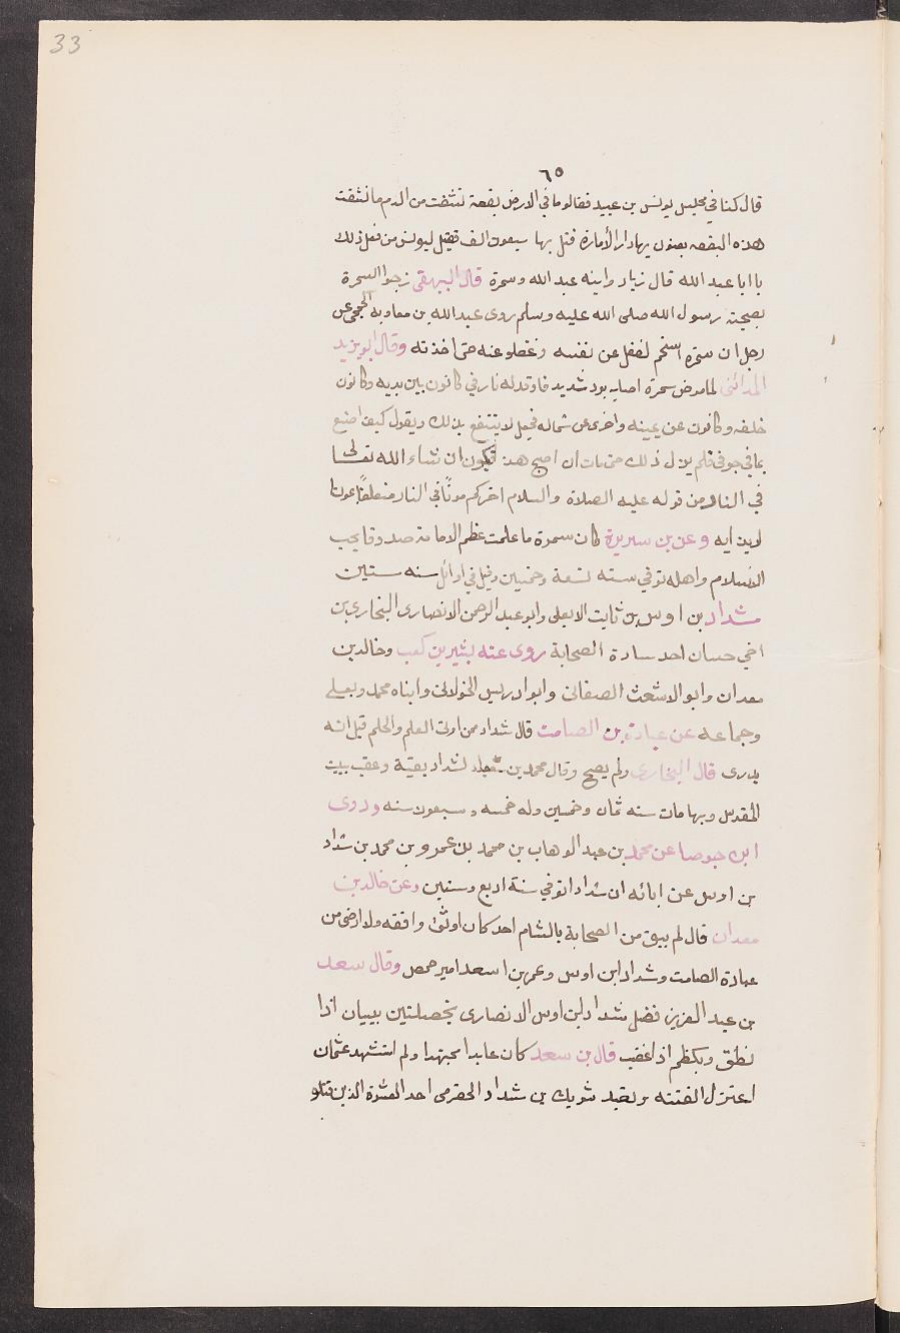 33
٦٥
قال كنا في مجلس يونس بن عبيد فقالو ما في الارض بقعة نشفت من الدم ما نشفت
هذه البقعه يعنون بها دار الأمارة قتل بها سبعون الف فقيل ليونس من فعل ذلك
يا ابا عبد الله قال زياد وابنه عبد الله وسمرة قال البيهقي نرجوا السمرة
بصحبته رسول الله صلى الله عليه وسلم روى عبد الله بن معاوية الجمحي عن
رجل ان سمرة استجمر لغفل عن نفسه وغفلو عنه حتى اخذته وقال ابو يزيد
المدائني لما مرض سمرة اصابه برد شديد فاوقد له نار في كانون بين يديه وكانون
خلفه وكانون عن يمينه واخرى عن شماله فجعل لا ينتفع بذلك ويقول كيف اصنع
بما في جوفي فلم يزل ذلك حتى مات ان اصح هذ فيكون ان شاء الله تعالى
في النار من قوله عليه الصلاة والسلام اخركم موتًا في النار متعلقًا بموته
لا بذاته وعن بن سيرين كان سمرة ما علمت عظم الامانة صدوقا يحب
الاسلام واهله توفي سنه تسعة وخمسين وقيل في اوائل سنه ستين
شداد بن اوس بن ثابت الابعلى وابو عبد الرحمن الانصارى النجارى بن
اخي حسان احد سادة الصحابة روى عنه بشير بن كعب وخالد بن
معدان وابو الاشعث الصنعانى وابو ادريس الخولانى وابناه محمد ويعلى
وجماعه عن عبادة بن الصامت قال شداد ممن اوتى العلم والحلم قيل انه
بدرى قال البخارى ولم يصح وقال محمد بن سعد لشداد بقية وعقب ببيت
المقدس وبها مات سنه ثمان وخمسين وله خمسه وسبعون سنه وروى
ابن جوصا عن محمد بن عبد الوهاب بن محمد بن عمرو بن محمد بن شداد
بن اوس عن ابائه ان شدادا توفي سنة اربع وستين وعن خالد بن
معدان قال لم يبق من الصحابة بالشام احد كان اوثق وافقه ولا ارضى من
عبادة الصامت وشداد ابن اوس وعمر بن اسعد امير حمص وقال سعد
بن عبد العزيز فضل شداد ابن اوس الانصارى بخصلتين ببيان اذا
نطق وبكظم اذا غضب قال بن سعد كان عابدا مجتهدا ولم استشهد عثمان
اعتزل الفتنه وتعبد شريك بن شداد الحضرمى احد العشرة الذين قتلو